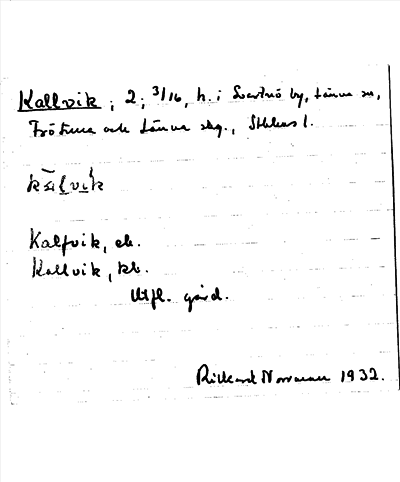 Kallvik, 2, 3/16, h. i Svartnö by, Länna sn,
Frötuna och Länna skg., Sthlms l.
kălvik
Kalfvik, eb.
Kallvik, kb.
Utfl. gård.
Rickard Norrman 1932.